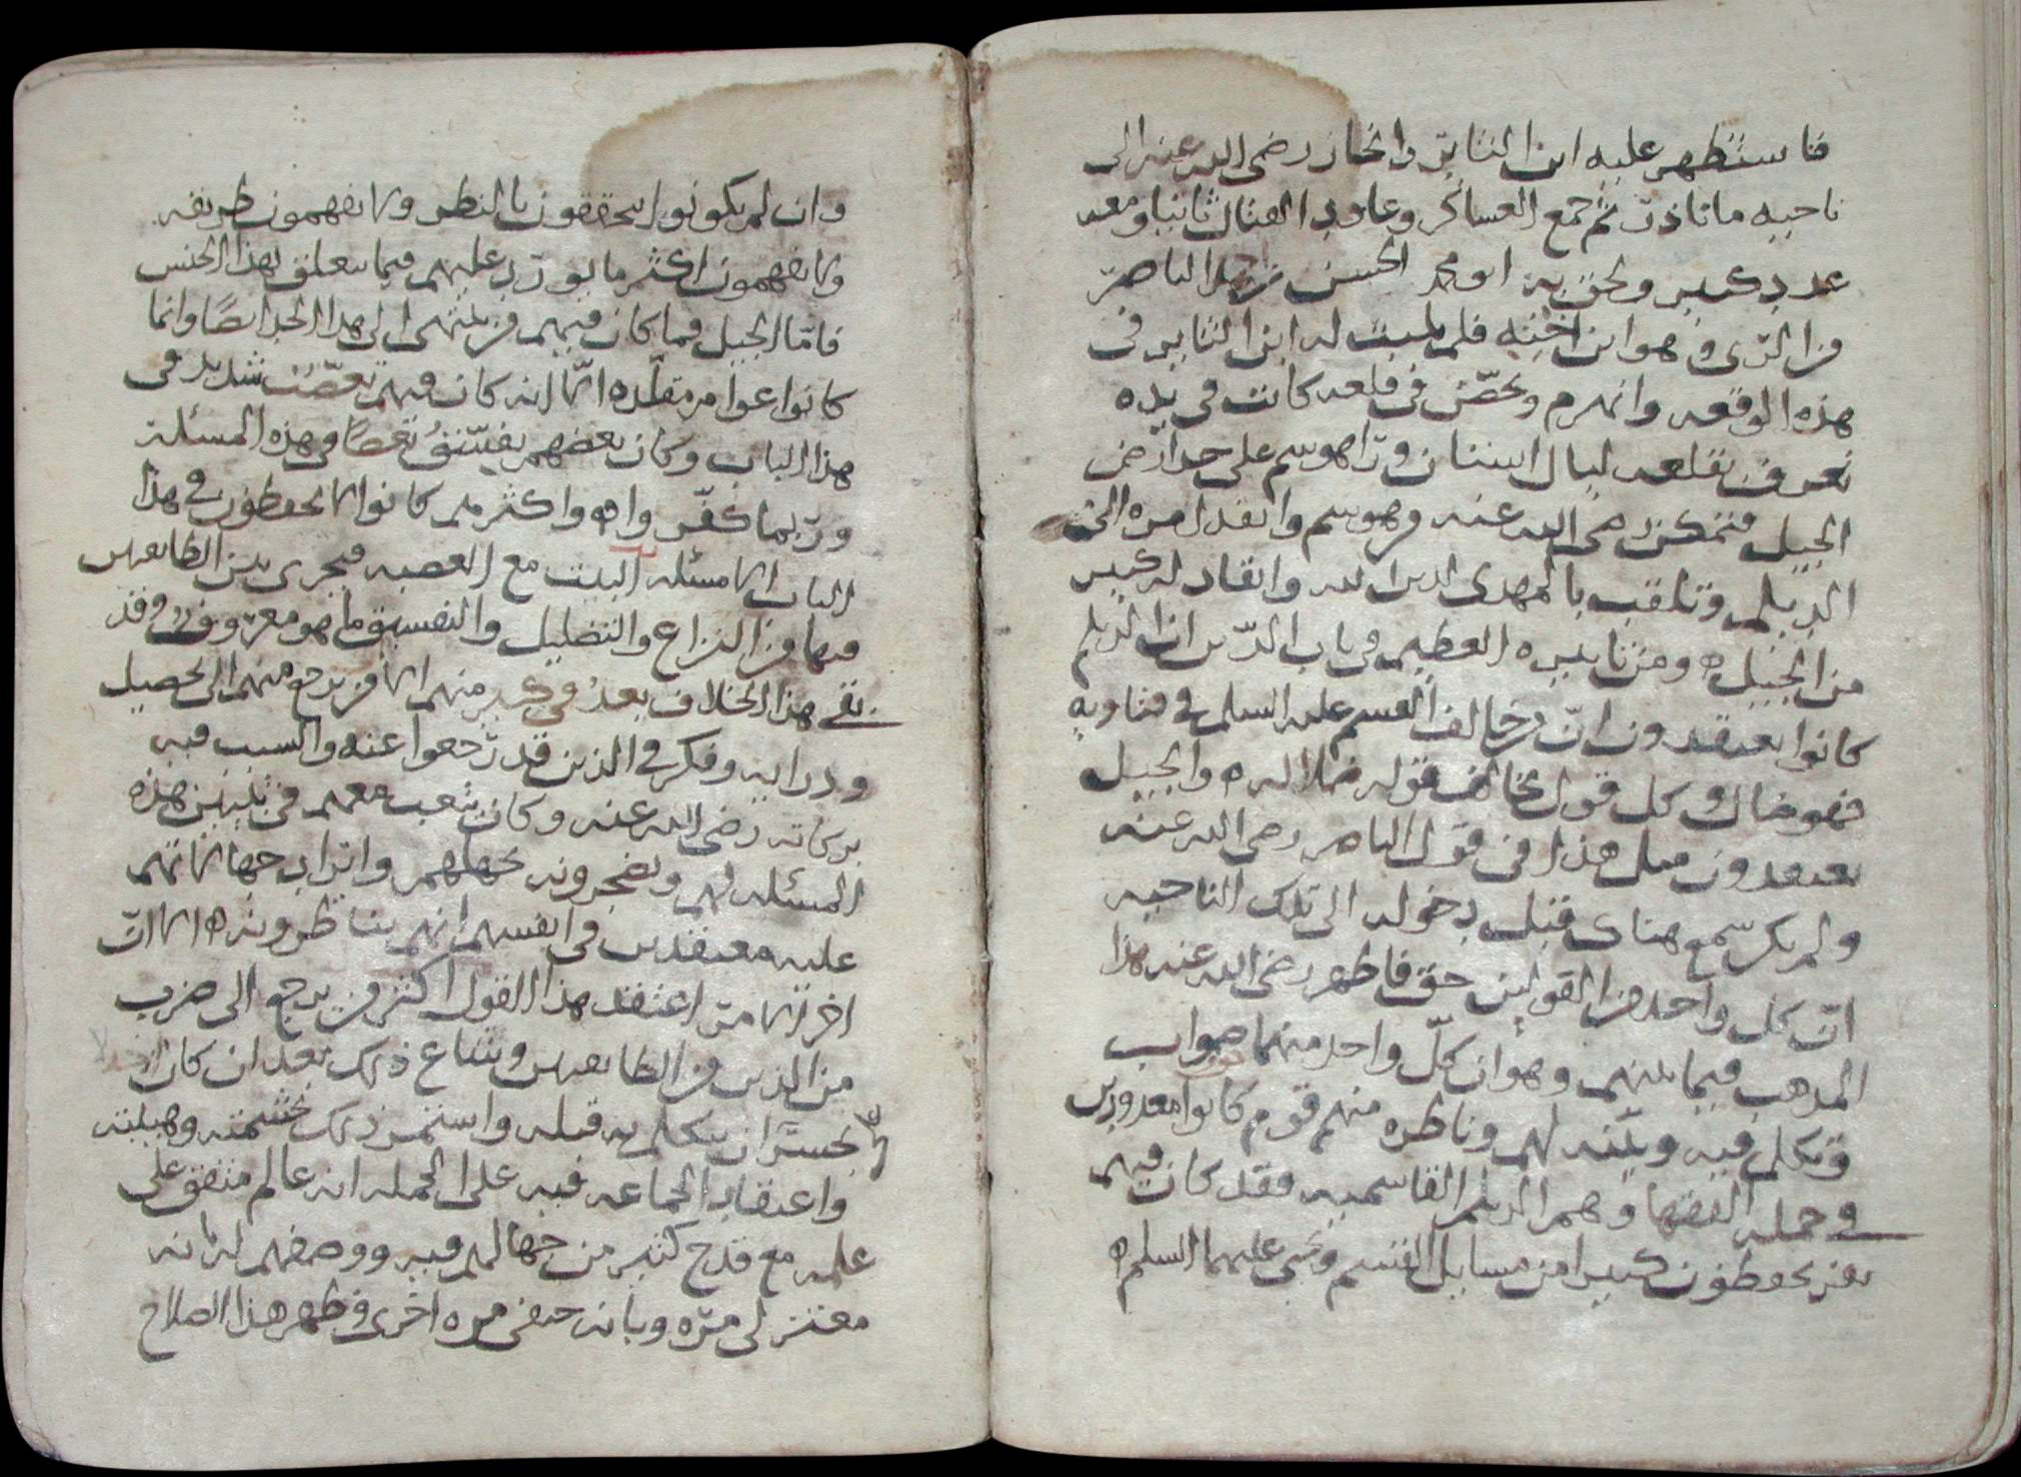 فاستظهر عليه ابن الثاير وانحاز رضي الله عنه الى
ناحيه ماناذر ثم جمع العساكر وعاود القتال ثانيا ومعه
عدد كبير ولحق به ابو محمد الحسن بن محمد الناصر
من الري وهو ابن اخيه فلم يلبث له ابن الثاير في
هذه الوقعه وانهزم وتحصن في قلعه كانت في يده
تعرف بقلعه على حد ارض
الجبيل فتمكن رضي الله عنه وهوسم وانفذ امره الى
الديلم وتلقب بالمهدي لدين الله وانقاد له كبير
من الجبيل ومن تاثيره العظيم في باب الدين ان الديلم
كانوا يعتقدون ان من خالف القسم عليه السلم في فتاويه
فهو ضال وكل قول يخالف قوله ضلاله والجبيل
يعتقدون مثل هذا في قول الناصر رضي الله عنه
ولم يكن سمع هناك قبل دخوله الى تلك الناحيه
ان كل واحد من القولين حق فاظهر رضي الله عنه هذا
المذهب فيما بينهم وهو ان كل واحد منهما صواب
وتكلم فيه وبينه لهم وناظره منهم قوم كانوا معدودين
في جمله الفقها وهم الديلم القاسميه فقد كان فيهم
من يحفظون كثيرا من مسايل القسم ويحيى عليهما السلم
وان لم يكونوا يتحققون بالنظر ولا يفهمون طريقه
ولا يفهمون اكثر ما يورد عليهم فيما يتعلق بهذا الجنس
فاما الجبيل فما كان فيهم من ينتهى الى هذا الحد ايضا وانما
كانوا عوام مقلده الا انه كان فيهم تعصب شديد في
هذا الباب وكان بعضهم يفسق بعضا في هذه المسئله
وربما كفر واه واكثرهم كانوا لا يحفظون في هذا
الباب الا مسئله البنت مع العصبه فيجرى بين الطايفتين
فيها من النزاع والتضليل والتفسيق ما هو معروف وقد
بقي هذا الخلاف بعد في كبير منهم الا من يرجع منهم الى تحصيل
ودرايه وفكر في الذين قد رجعوا عنه والسبب فيه
بركاته رضي الله عنه وكان يتعب معهم في تبيين هذه
المسئله لهم ويضجرونه بجهلهم وايراد جهالاتهم
عليه معتقدين في انفسهم انهم يناظرونه الا ان
اخر الامر اعتقد هذا القول اكثر من يرجع الى ضرب
من الدين من الطايفتين وشاع ذلك بعد ان كان
لا يجسر ان يتكلم به قبله واستمر ذلك بحشمته وهيبته
واعتقاد الجماعه فيه على الجمله انه عالم متفق على
علمه مع قدح كثير من جهالهم فيه ووصفهم له بانه
معتزلى مره وبانه حنفى مره اخرى وظهر هذا الصلاح